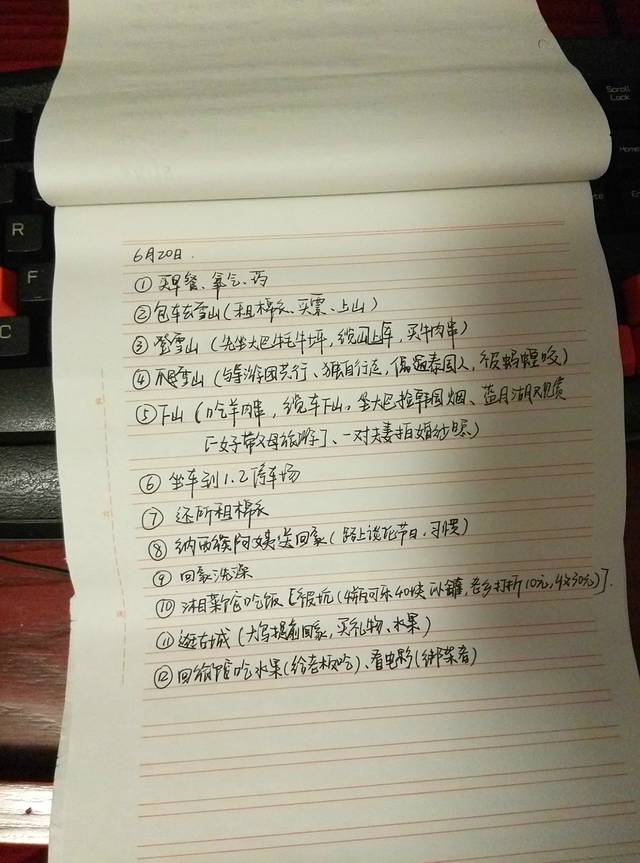 6月20日.
① 买早餐、氧气、药
② 包车去雪山(租棉衣、买票、上山)
③ 登雪山(先坐大巴牦牛坪,缆车上车,买牛肉串)
④ 雪山(与导游团共行、独自行走,偶遇泰国人,被蚂蝗咬)
⑤ 下山(吃羊肉串,缆车下山,坐大巴捡韩国烟、蓝月湖观赏
[一女子带父母旅游]、一对夫妻拍婚纱照、)
⑥ 坐车到1.2停车场
⑦ 还所租棉衣
⑧ 纳西族阿姨送回家(路上谈论节日、习惯)
⑨ 回家洗澡
⑩ 湘菜馆吃饭[被坑(4瓶可乐40块 小罐,老乡打折10元,收30元)].
⑪ 逛古城(大写提前回家,买礼物、水果)
⑫ 回旅馆吃水果(给老板吃)、看电影(绑架者)
R
F
C
Scroll
Lock
Home